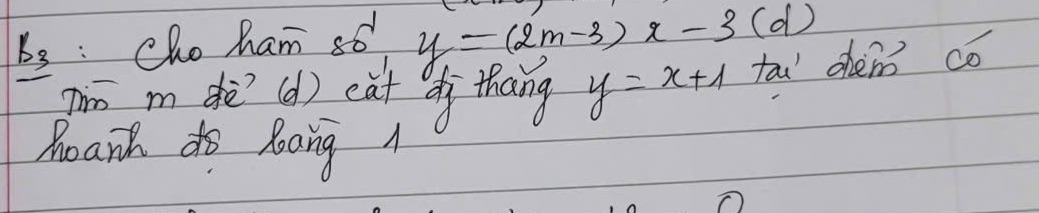 B3 : Cho hàm số y = (2m-3) x - 3 (d)
Tìm m để (d) cắt đg thẳng y = x+1 tại điểm có
hoành độ bằng 1